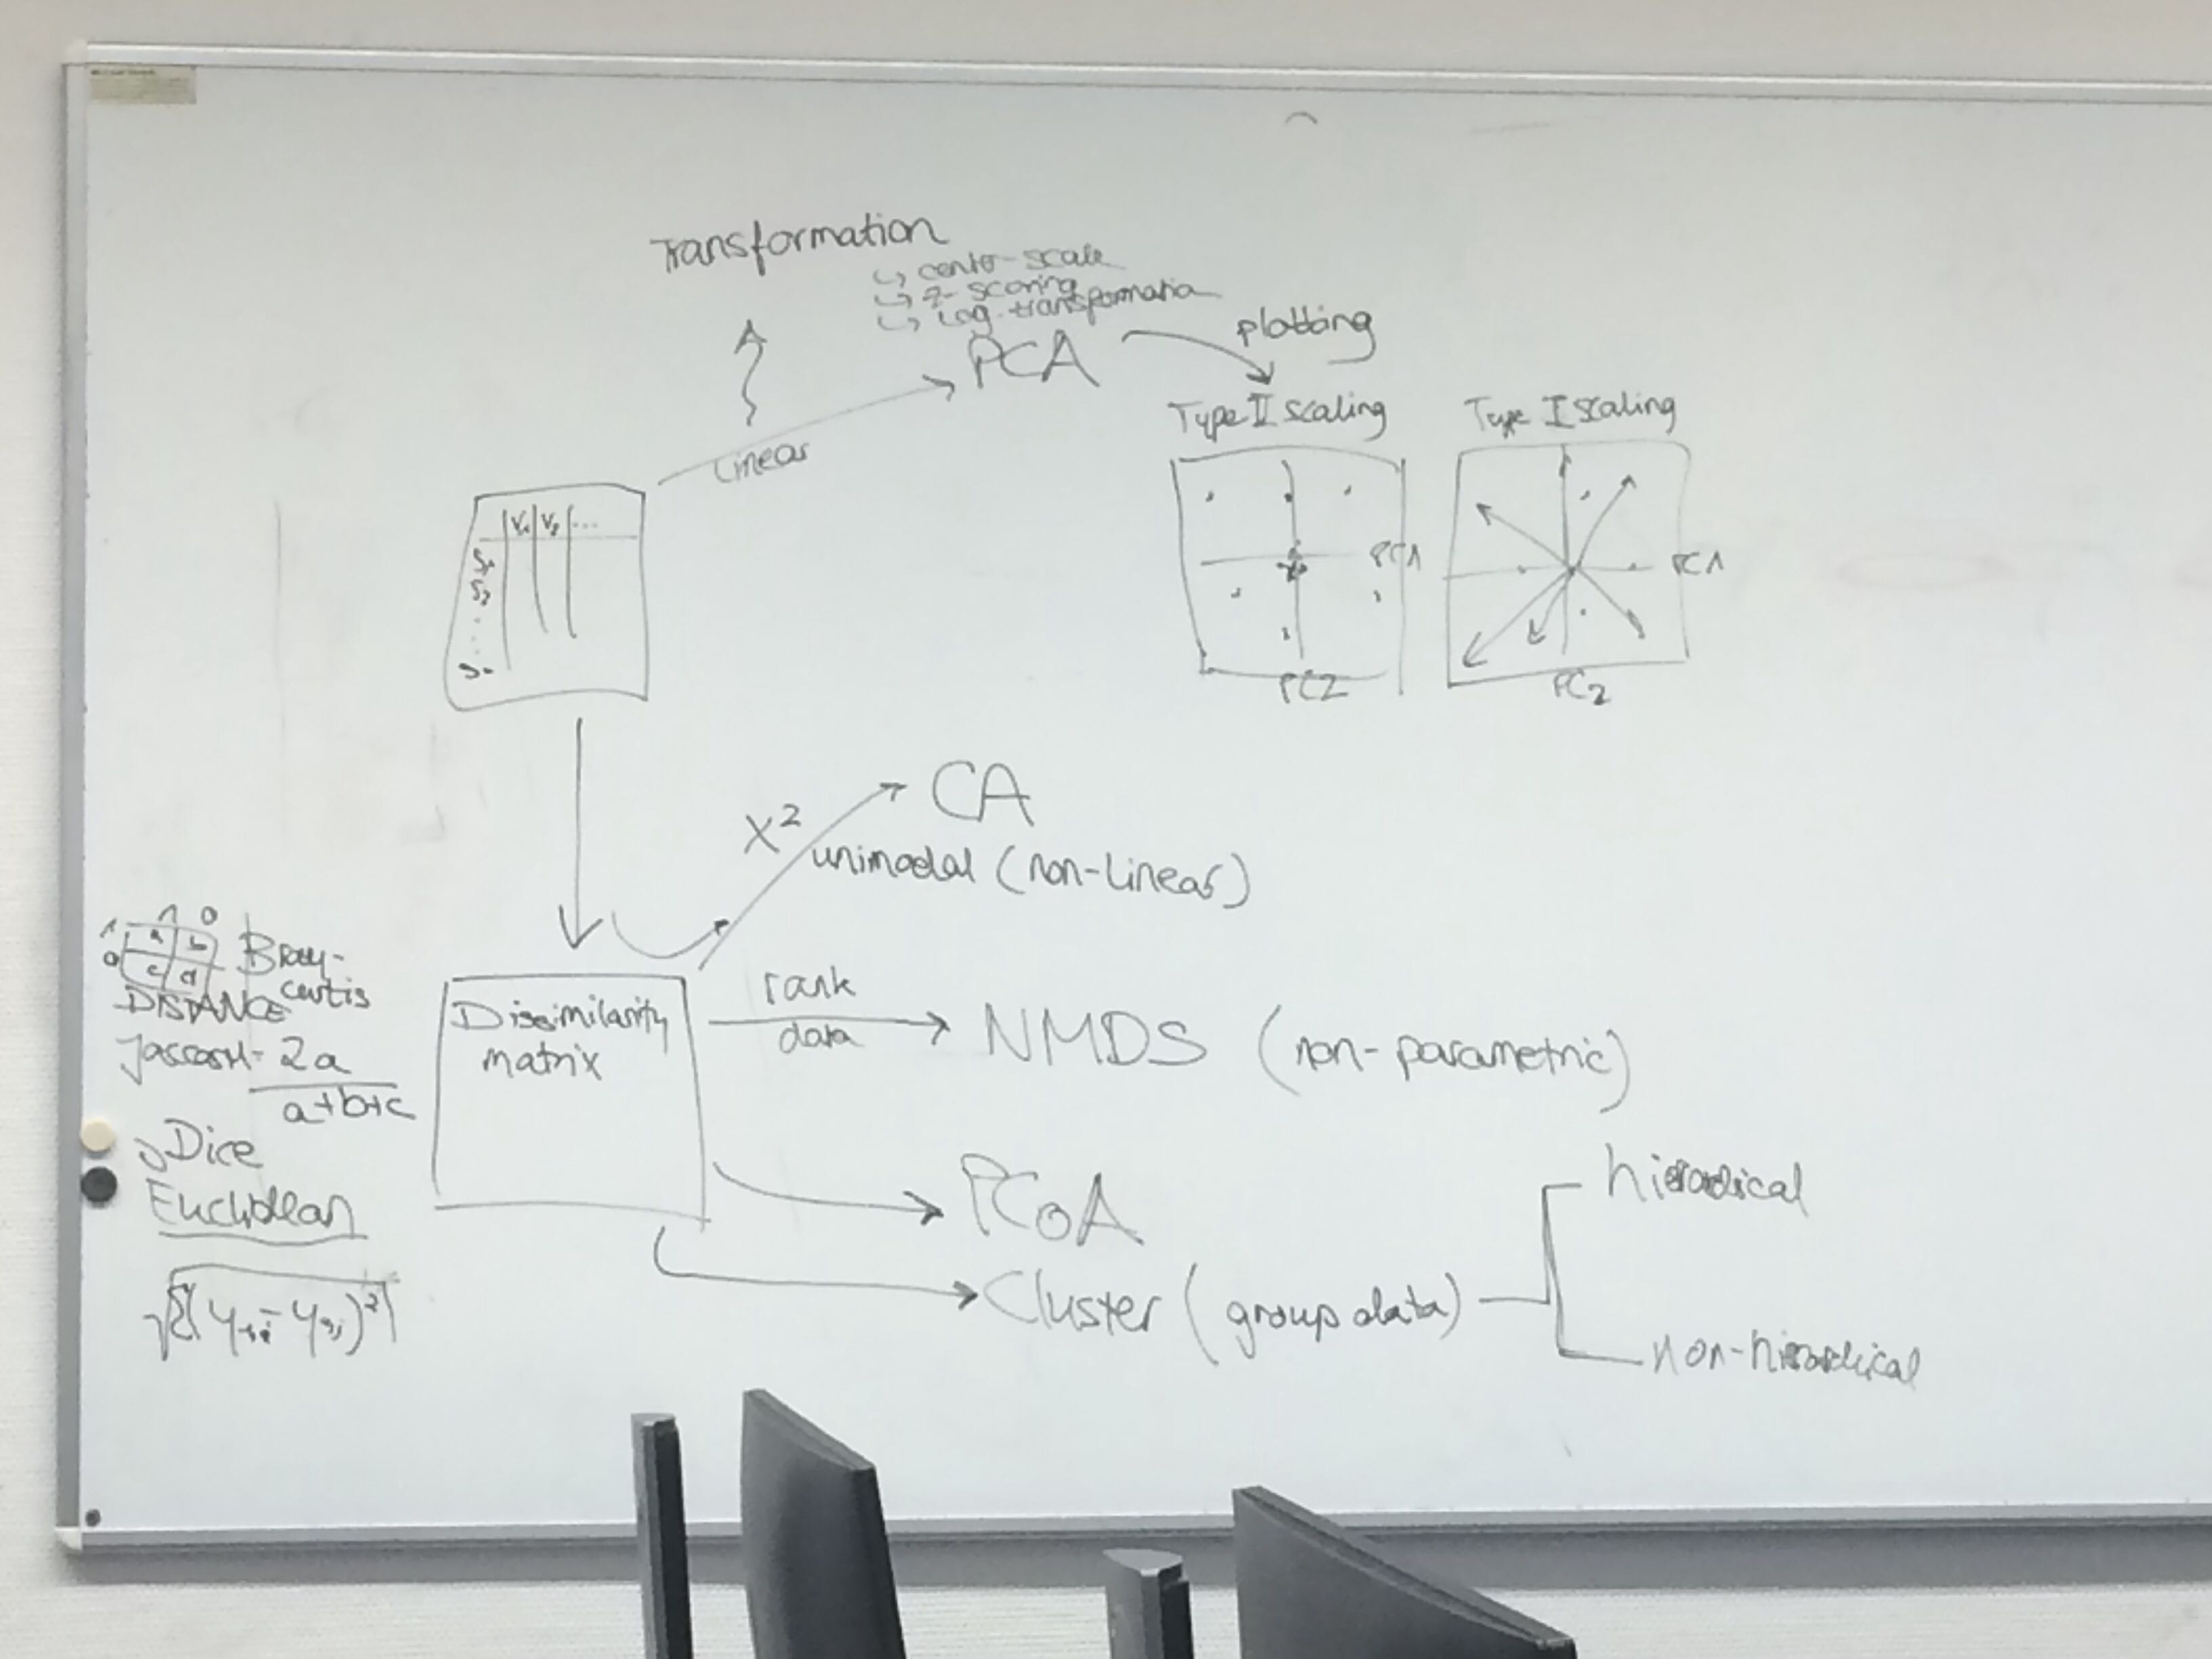 Transformation
↳ center-scale
↳ z-scoring
↳ Log-transformation
PCA
plotting
Linear
Type II scaling
Type I scaling
V1 V2 ...
S1
S2
PC1
PC1
PC2
PC2
CA
X²
unimodal (non-linear)
1 0
1 a b
0 c d
Bray-
curtis
DISTANCE
Jaccard - 2a
a+b+c
Dice
Euclidean
√Σ(y1i - y2i)²
Dissimilarity
matrix
rank
data
NMDS (non-parametric)
PCoA
Cluster (group data)
hierarchical
non-hierarchical